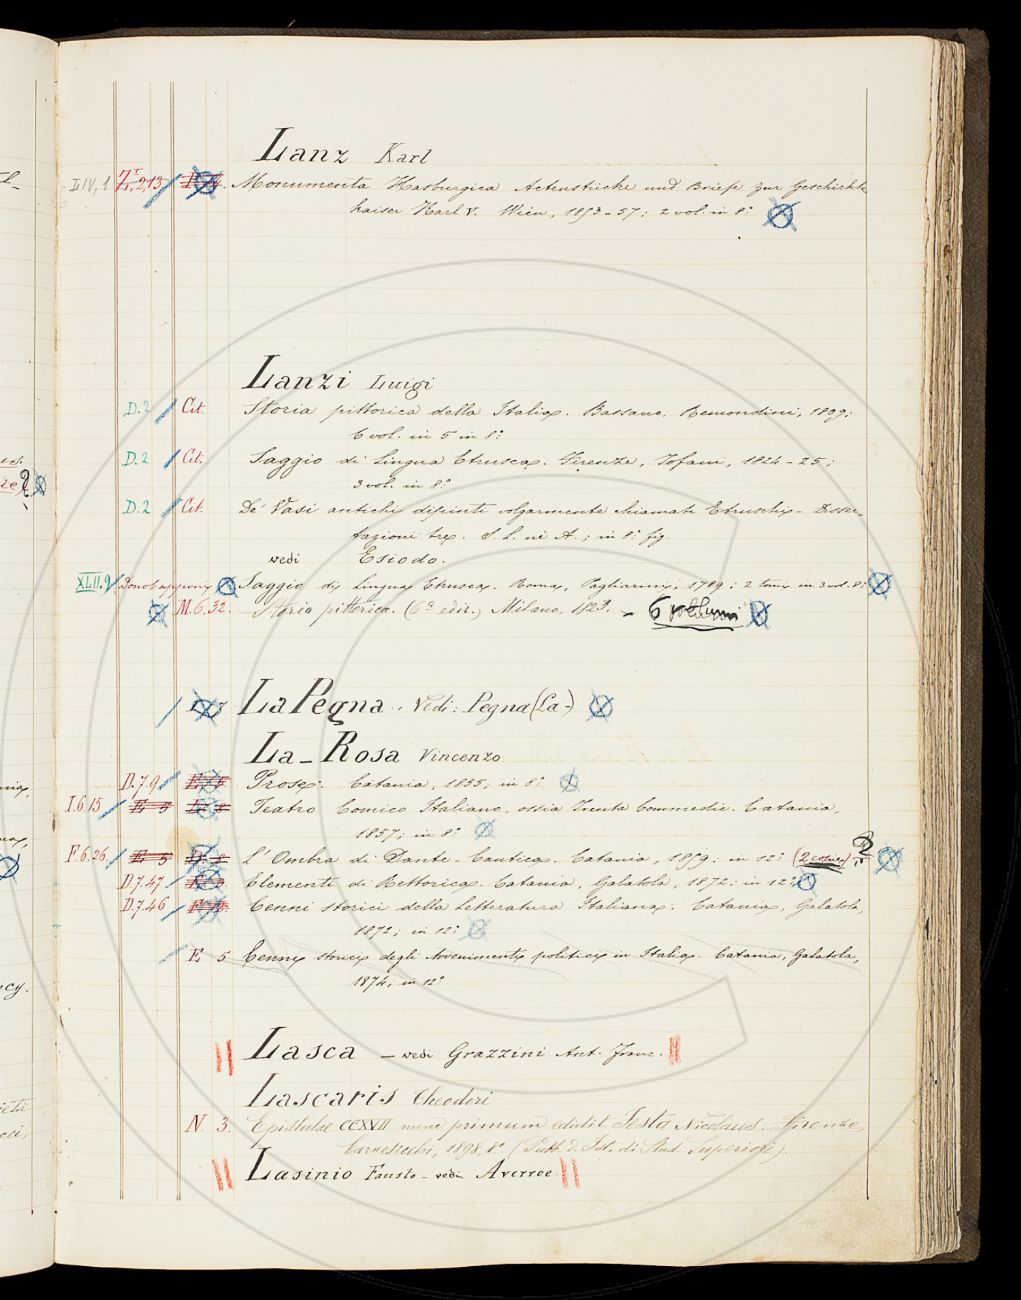 Lanz Karl
LIV, 1 Monumenta Hasburgica Actenstücke und Briefe zur Geschichte
kaiser Karl V. Wien, 1853-57; 2 vol. in 8º
Lanzi Luigi
D. 2 Cit. Storia pittorica della Italia. Bassano. Remondini, 1809;
6 vol. in 5 in 8º
D. 2 Cit. Saggio di Lingua Etrusca. Firenze, Tofani, 1824-25;
3 vol. in 8º
D. 2 Cit. De' Vasi antichi dipinti volgarmente chiamati Etruschi. Disser
tazioni tre. S. L. nè A.; in 8º fig.
vedi Esiodo.
XLII.9 Saggio di Lingua Etrusca. Roma, Pagliarini, 1789; 2 tomi in 3 vol. 8º
M. 6. 32. Storia pittorica. (6ª ediz.) Milano, 1823. - 6 volumi
La Pegna. Vedi: Pegna (La-)
La-Rosa Vincenzo
D.7.9 Prose. Catania, 1855; in 8º
I.6.15 E 5 Teatro Comico Italiano, ossia Trenta Commedie. Catania,
1857; in 8º
F.6.26. E 5 L'Ombra di Dante-Cantica. Catania, 1859; in 12º (2 copie) ?
D.7.47 Elementi di Rettorica. Catania, Galatola, 1872; in 12º
D.7.46 Cenni storici della Letteratura Italiana. Catania, Galatola,
1872; in 12º
E 5 Cenni storici degli Avvenimenti politici in Italia. Catania, Galatola,
1874; in 12º
Lasca - vedi Grazzini Ant. Franc.
Lascaris Theodori
N. 3. Epistulae CCXVII nunc primum edidit Festa Nicolaus. Firenze,
Carnesecchi, 1898, 8º (Pubb. d. Ist. di Stud. Superiori).
Lasinio Fausto - vedi Averroe.